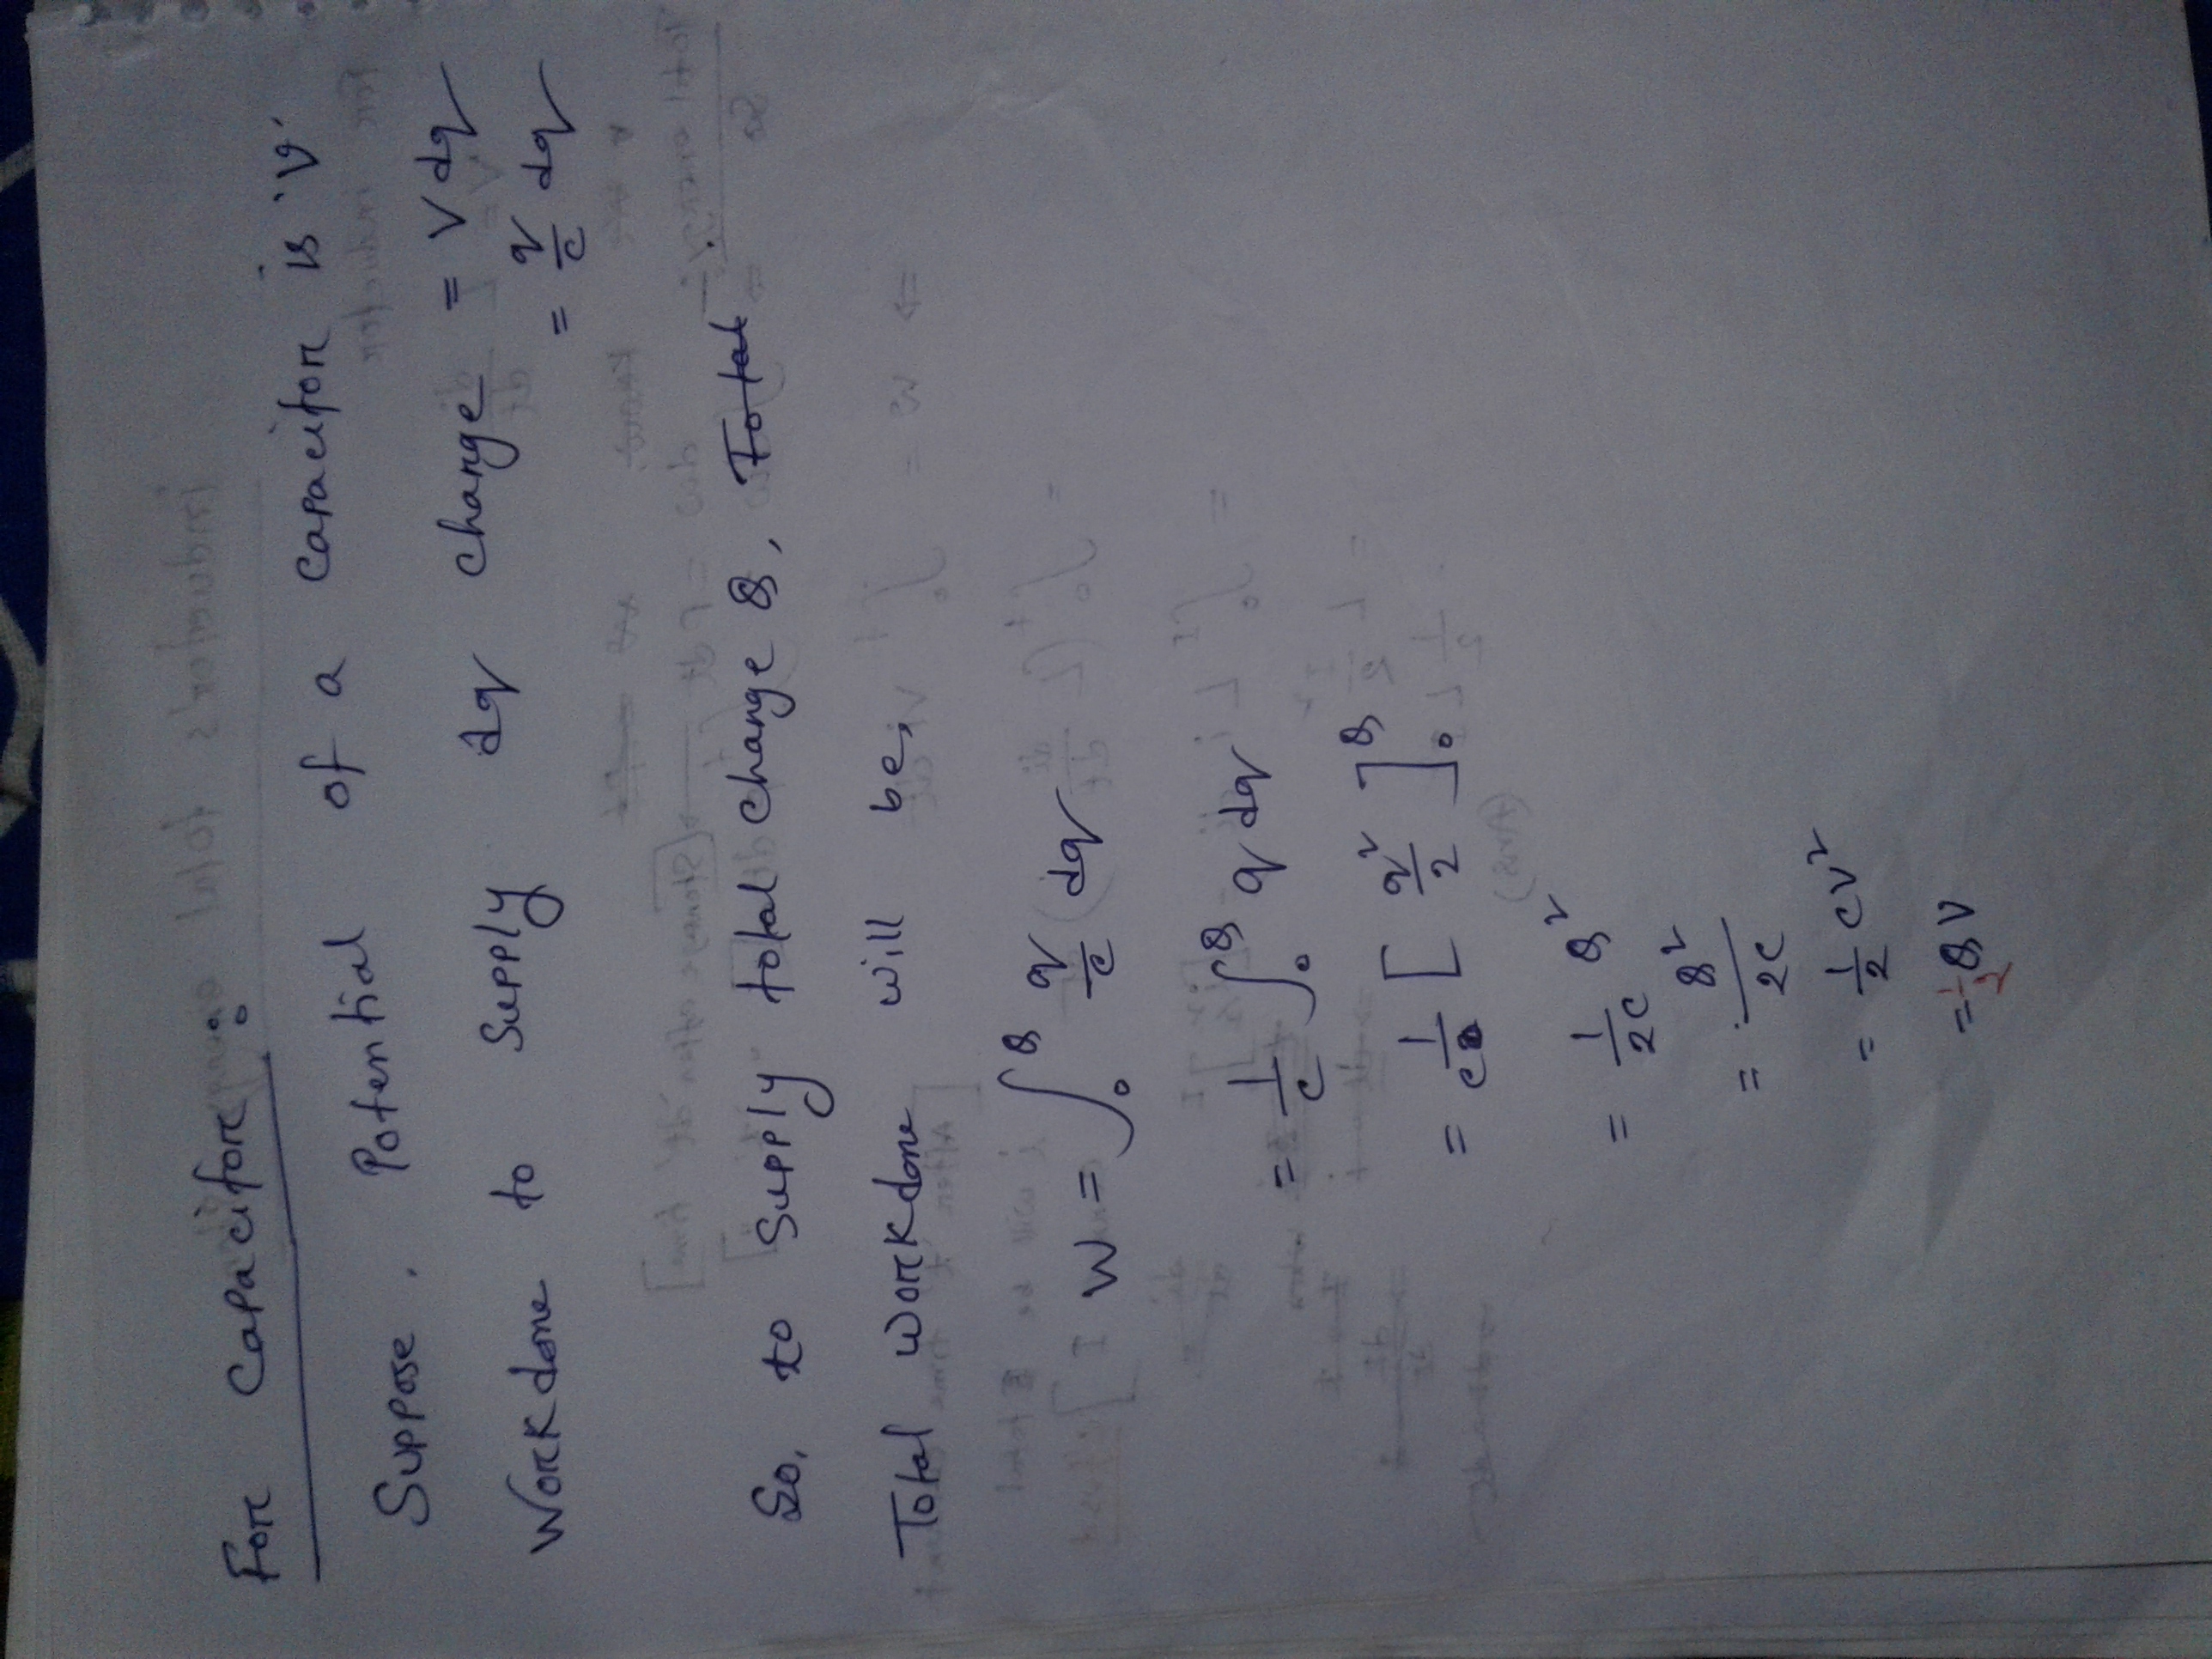 For Capacitor :
Suppose, Potential of a capacitor is 'V'
Workdone to supply dq charge = V dq
= q/c dq
So, to supply total charge Q, Total
Total workdone will be,
W = ∫₀^Q q/c dq
= 1/c ∫₀^Q q dq
= 1/c [ q²/2 ]₀^Q
= 1/2C Q²
= Q²/2C
= 1/2 CV²
= 1/2 QV